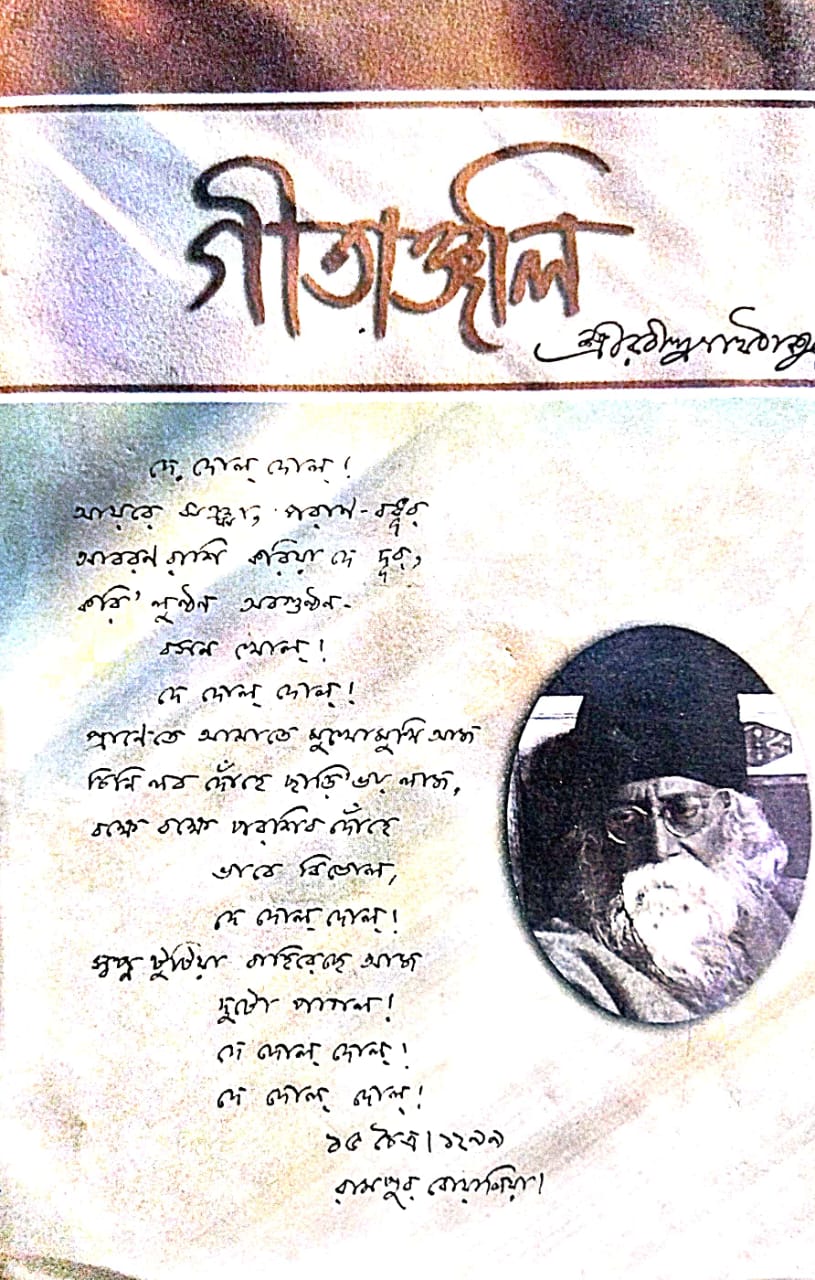 গীতাঞ্জলি
শ্রীরবীন্দ্রনাথ ঠাকুর
দে দোল্ দোল্!
আয়রে ঝঞ্ঝা, পরাণ-বধূর
আবরণ রাশি করিয়া দে দূর,
করি' লুণ্ঠন অবগুণ্ঠন-
বসন খোল্!
দে দোল্ দোল্!
প্রাণেতে আমাতে মুখোমুখি আজ
চিনি লব দোঁহে ছাড়ি' ভয় লাজ,
বক্ষে বক্ষে পরশিব দোঁহে
ভাবে বিভোল,
দে দোল্ দোল্!
স্বপ্ন টুটিয়া বাহিরেছে আজ
দুটো পাগল!
দে দোল্ দোল্!
দে দোল্ দোল্!
১৫ চৈত্র। ১২৯৯
রামপুর বোয়ালিয়া।